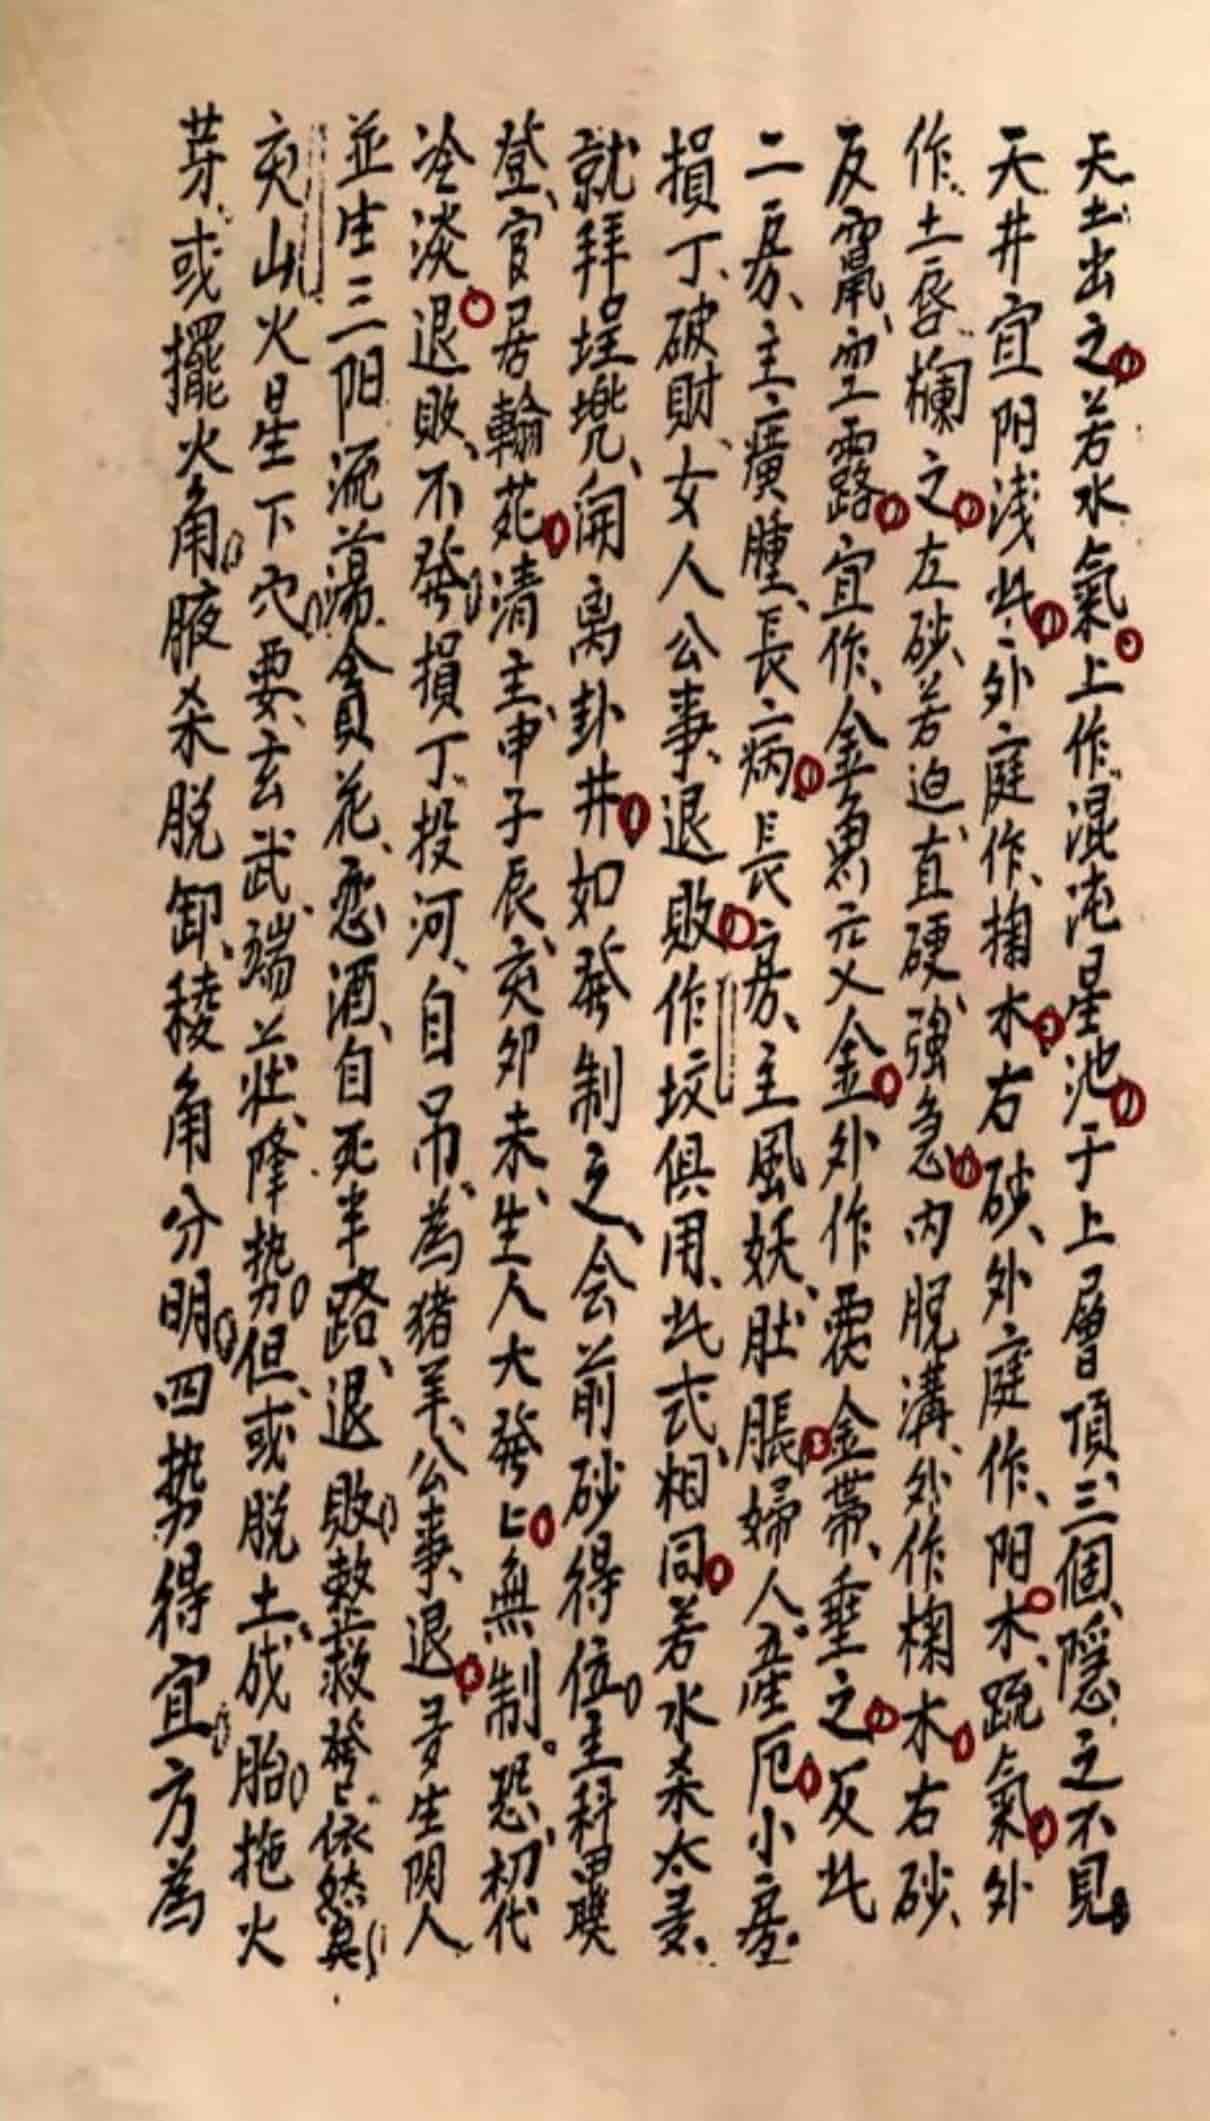 天土出之若水氣上作混沌星池于上層頂三個隱之不見
天井宜阳浅此外庭作掬木右砂外庭作阳木疏氣外
作土唇欄之左砂若迫直硬強急内脱溝外作掬木右砂
反竄空露宜作金魚元乂金外作裹金帶垂之反此
二房主癀腫長病長房主風妖肚脹婦人产厄小房
損丁破財女人公事退敗作坟俱用此式相同若水杀太
就拜埕兜開离卦井如發制之会前砂得位主科甲聨
登官居翰苑清主申子辰亥卯未生人大發無制恐初代
冷淡退敗不發損丁投河自吊為猪羊公事退多生阴人
並生三阳流蕩貪花恋酒自死半路退敗救發依然
亥山火星下穴要玄武端莊降势但或脱土成胎拖火
芽或擺火角腋杀脱卸稜角分明四势得宜方為